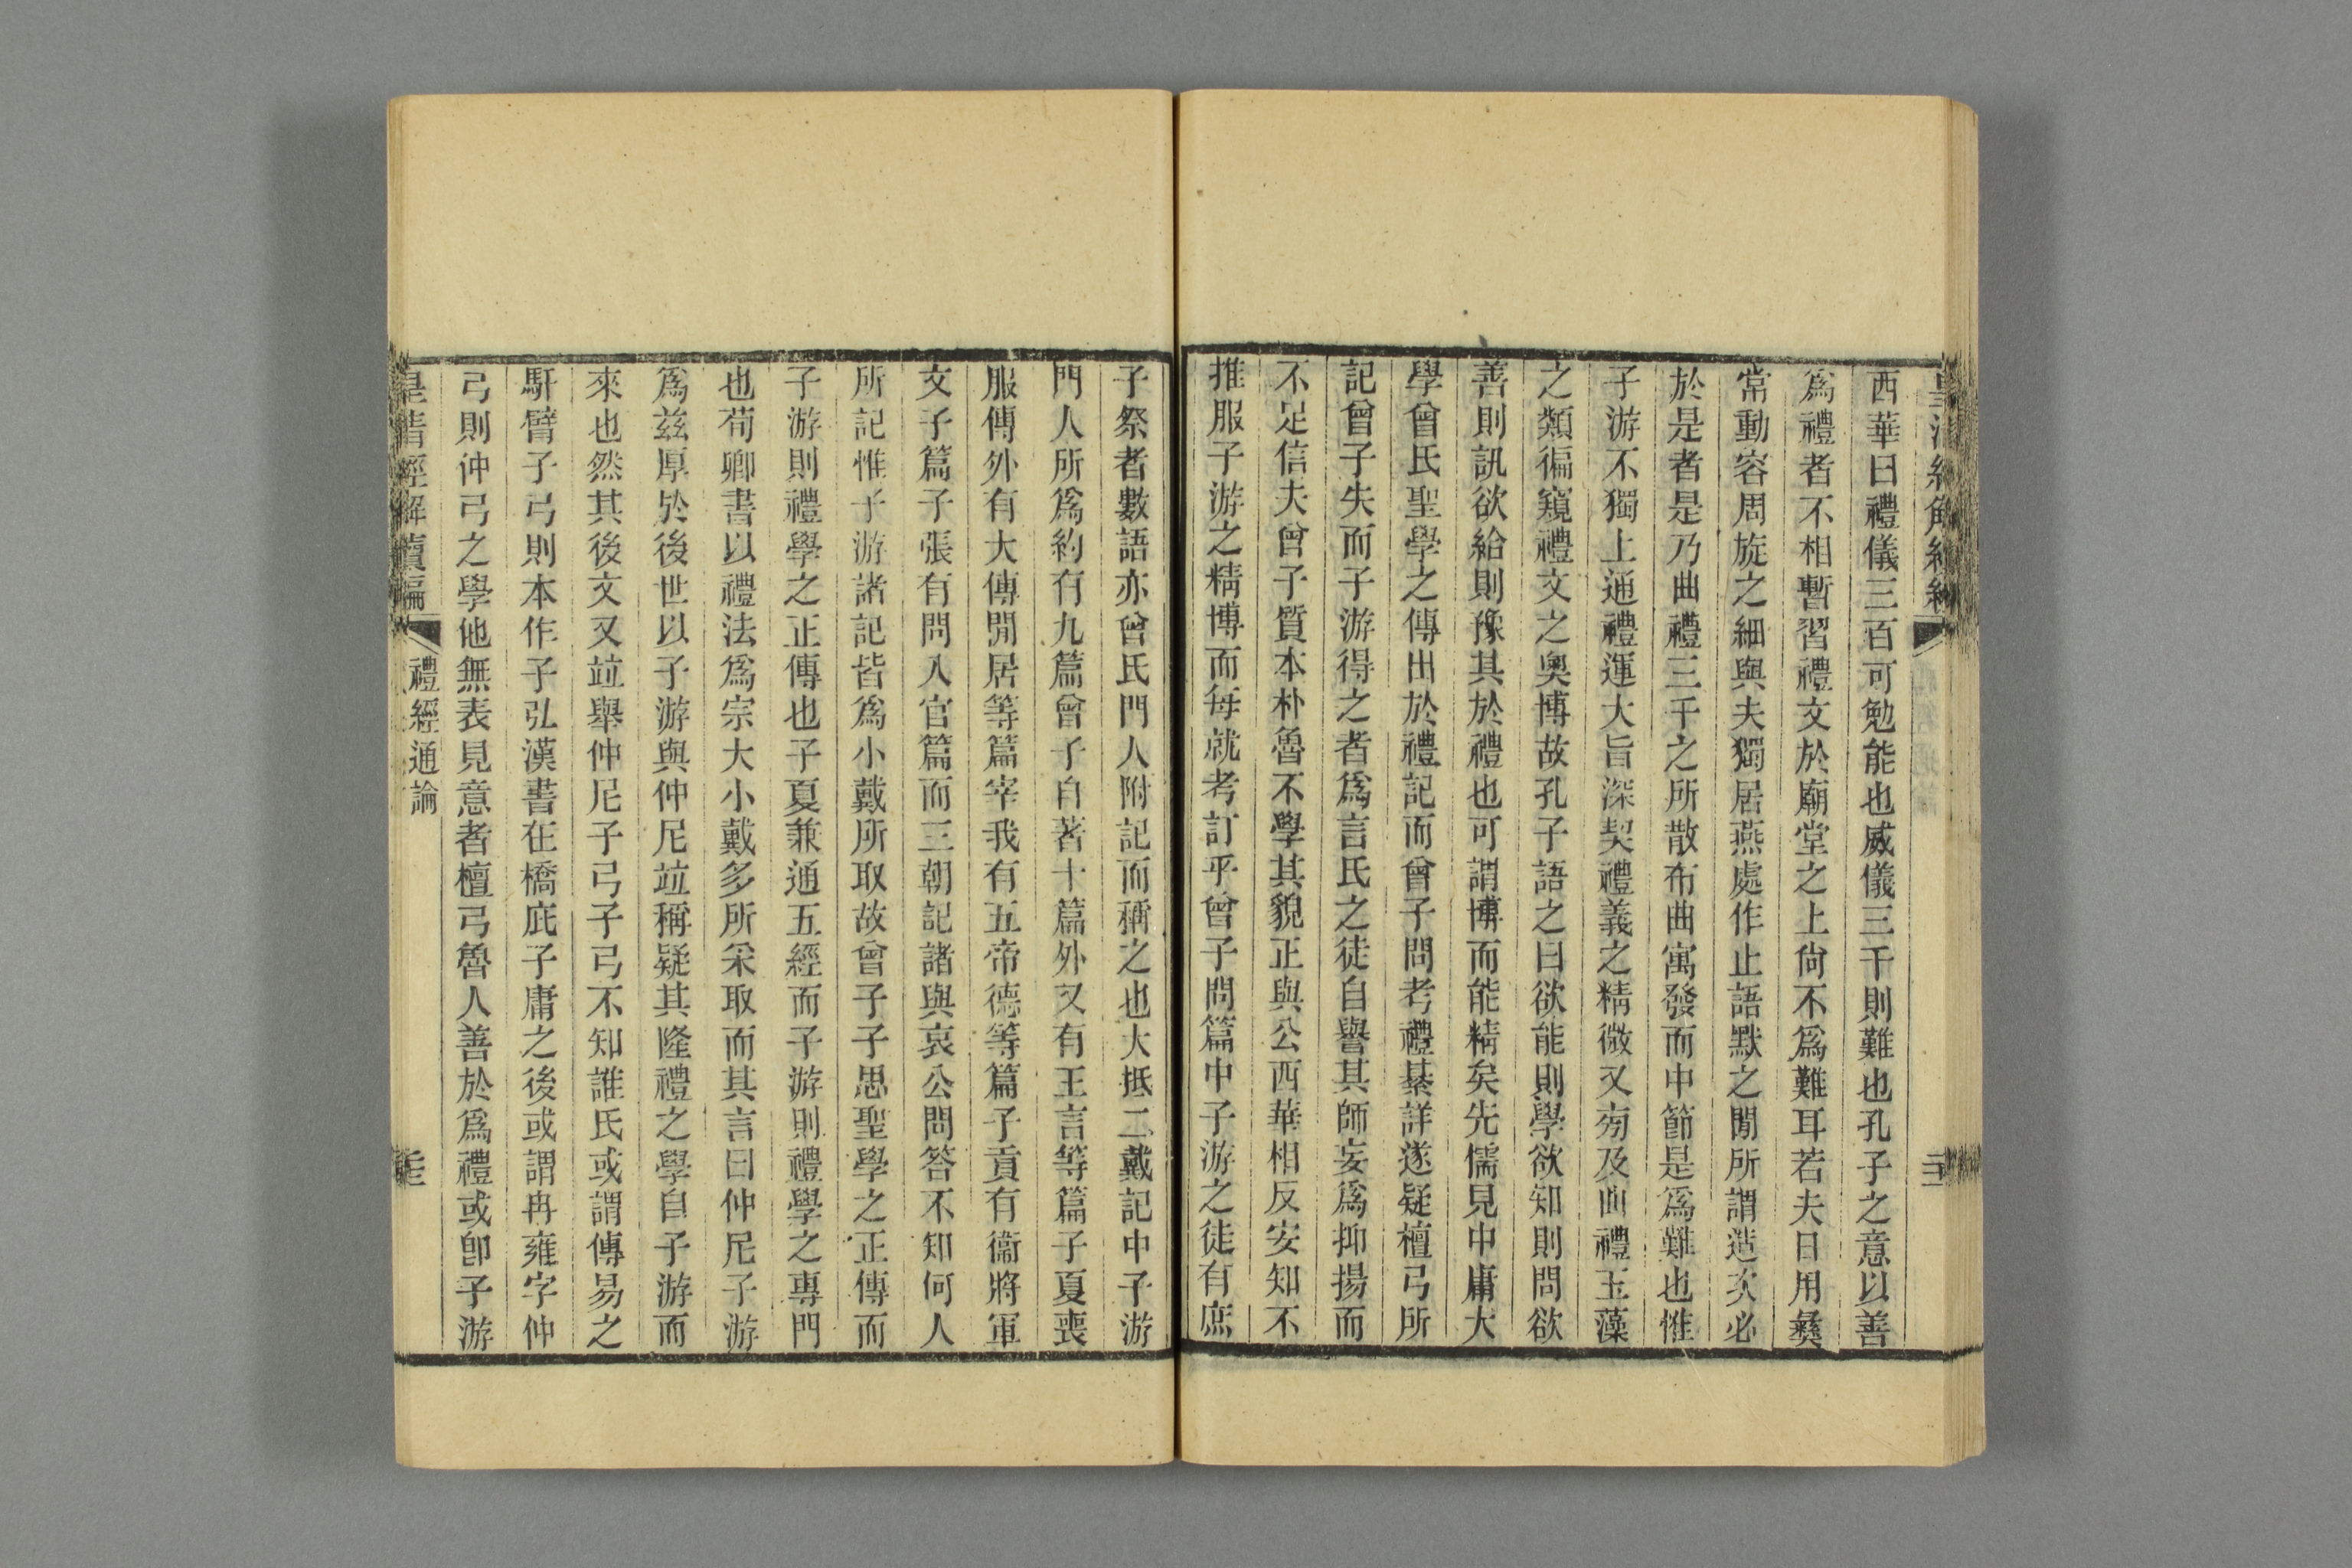 西華曰禮儀三百可勉能也威儀三千則難也孔子之意以善
爲禮者不相暫習禮文於廟堂之上尙不爲難耳若夫日用彝
常動容周旋之細與夫獨居燕處作止語默之閒所謂造次必
於是者是乃曲禮三千之所散布曲寓發而中節是爲難也惟
子游不獨上通禮運大旨深契禮義之精微又㫄及曲禮玉藻
之類徧窺禮文之奧博故孔子語之曰欲能則學欲知則問欲
善則訊欲給則豫其於禮也可謂博而能精矣先儒見中庸大
學曾氏聖學之傳出於禮記而曾子問考禮綦詳遂疑檀弓所
記曾子失而子游得之者爲言氏之徒自譽其師妄爲抑揚而
不足信夫曾子質本朴魯不學其貌正與公西華相反安知不
推服子游之精博而每就考訂乎曾子問篇中子游之徒有庶
子祭者數語亦曾氏門人附記而稱之也大抵二戴記中子游
門人所爲約有九篇曾子自著十篇外又有王言等篇子夏喪
服傳外有大傳閒居等篇宰我有五帝德等篇子貢有衞將軍
文子篇子張有問入官篇而三朝記諸與哀公問答不知何人
所記惟子游諸記皆爲小戴所取故曾子子思聖學之正傳而
子游則禮學之正傳也子夏兼通五經而子游則禮學之專門
也荀卿書以禮法爲宗大小戴多所采取而其言曰仲尼子游
爲兹厚於後世以子游與仲尼竝稱疑其隆禮之學自子游而
來也然其後文又竝舉仲尼子弓子弓不知誰氏或謂傳易之
馯臂子弓則本作子弘漢書在橋庇子庸之後或謂冉雍字仲
弓則仲弓之學他無表見意者檀弓魯人善於爲禮或卽子游
皇清經解續編
禮經通論